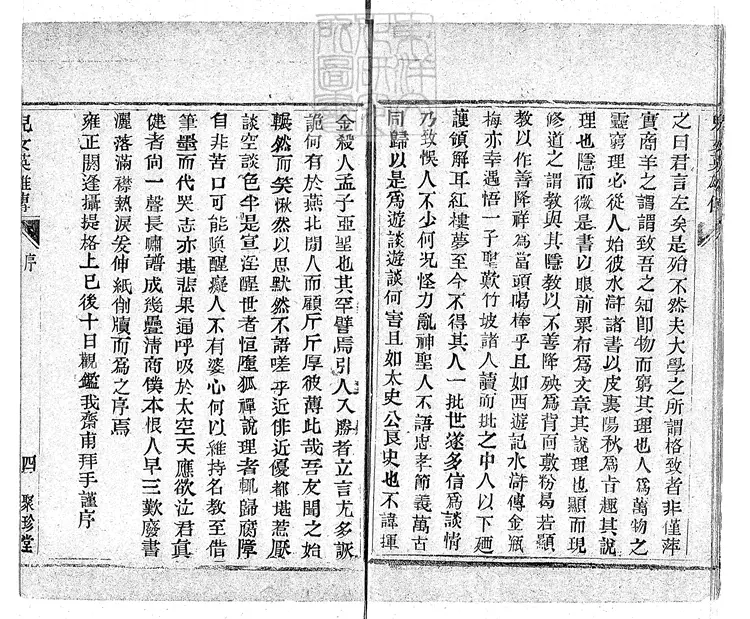 之曰君言左矣是殆不然夫大學之所謂格致者非僅萍
實商羊之謂謂致吾之知卽物而窮其理也人爲萬物之
靈窮理必從人始彼水滸諸書以皮裏陽秋爲旨趣其說
理也隱而微是書以眼前粟布爲文章其說理也顯而現
修道之謂敎與其隱敎以不善降殃爲背面敷粉曷若顯
敎以作善降祥爲當頭喝棒乎且如西遊記水滸傳金瓶
梅亦幸遇悟一子聖歎竹坡諸人讀而批之中人以下廼
護領解耳紅樓夢至今不得其人一批世遂多信爲談情
乃致悞人不少何况怪力亂神聖人不語忠孝節義萬古
同歸以是爲遊談遊談何害且如太史公良史也不諱揮
金殺人孟子亞聖也其罕譬焉引人入勝者立言尤多詼
詭何有於燕北閒人而顧斤斤厚彼薄此哉吾友聞之始
輾然而笑愀然以思默然不語嗟乎近俳近優都堪惹厭
談空談色半是宣淫醒世者恒墮狐禪說理者輒歸腐障
自非苦口可能喚醒癡人不有婆心何以維持名敎至借
筆墨而代哭志亦堪悲果通呼吸於太空天應欲泣君真
健者尙一聲長嘯譜成幾疊清商僕本恨人早三歎廢書
灑落滿襟熱淚爰伸紙削牘而爲之序焉
雍正閼逢攝提格上巳後十日觀鑑我齋甫拜手謹序
兒女英雄傳
序
四
聚珍堂